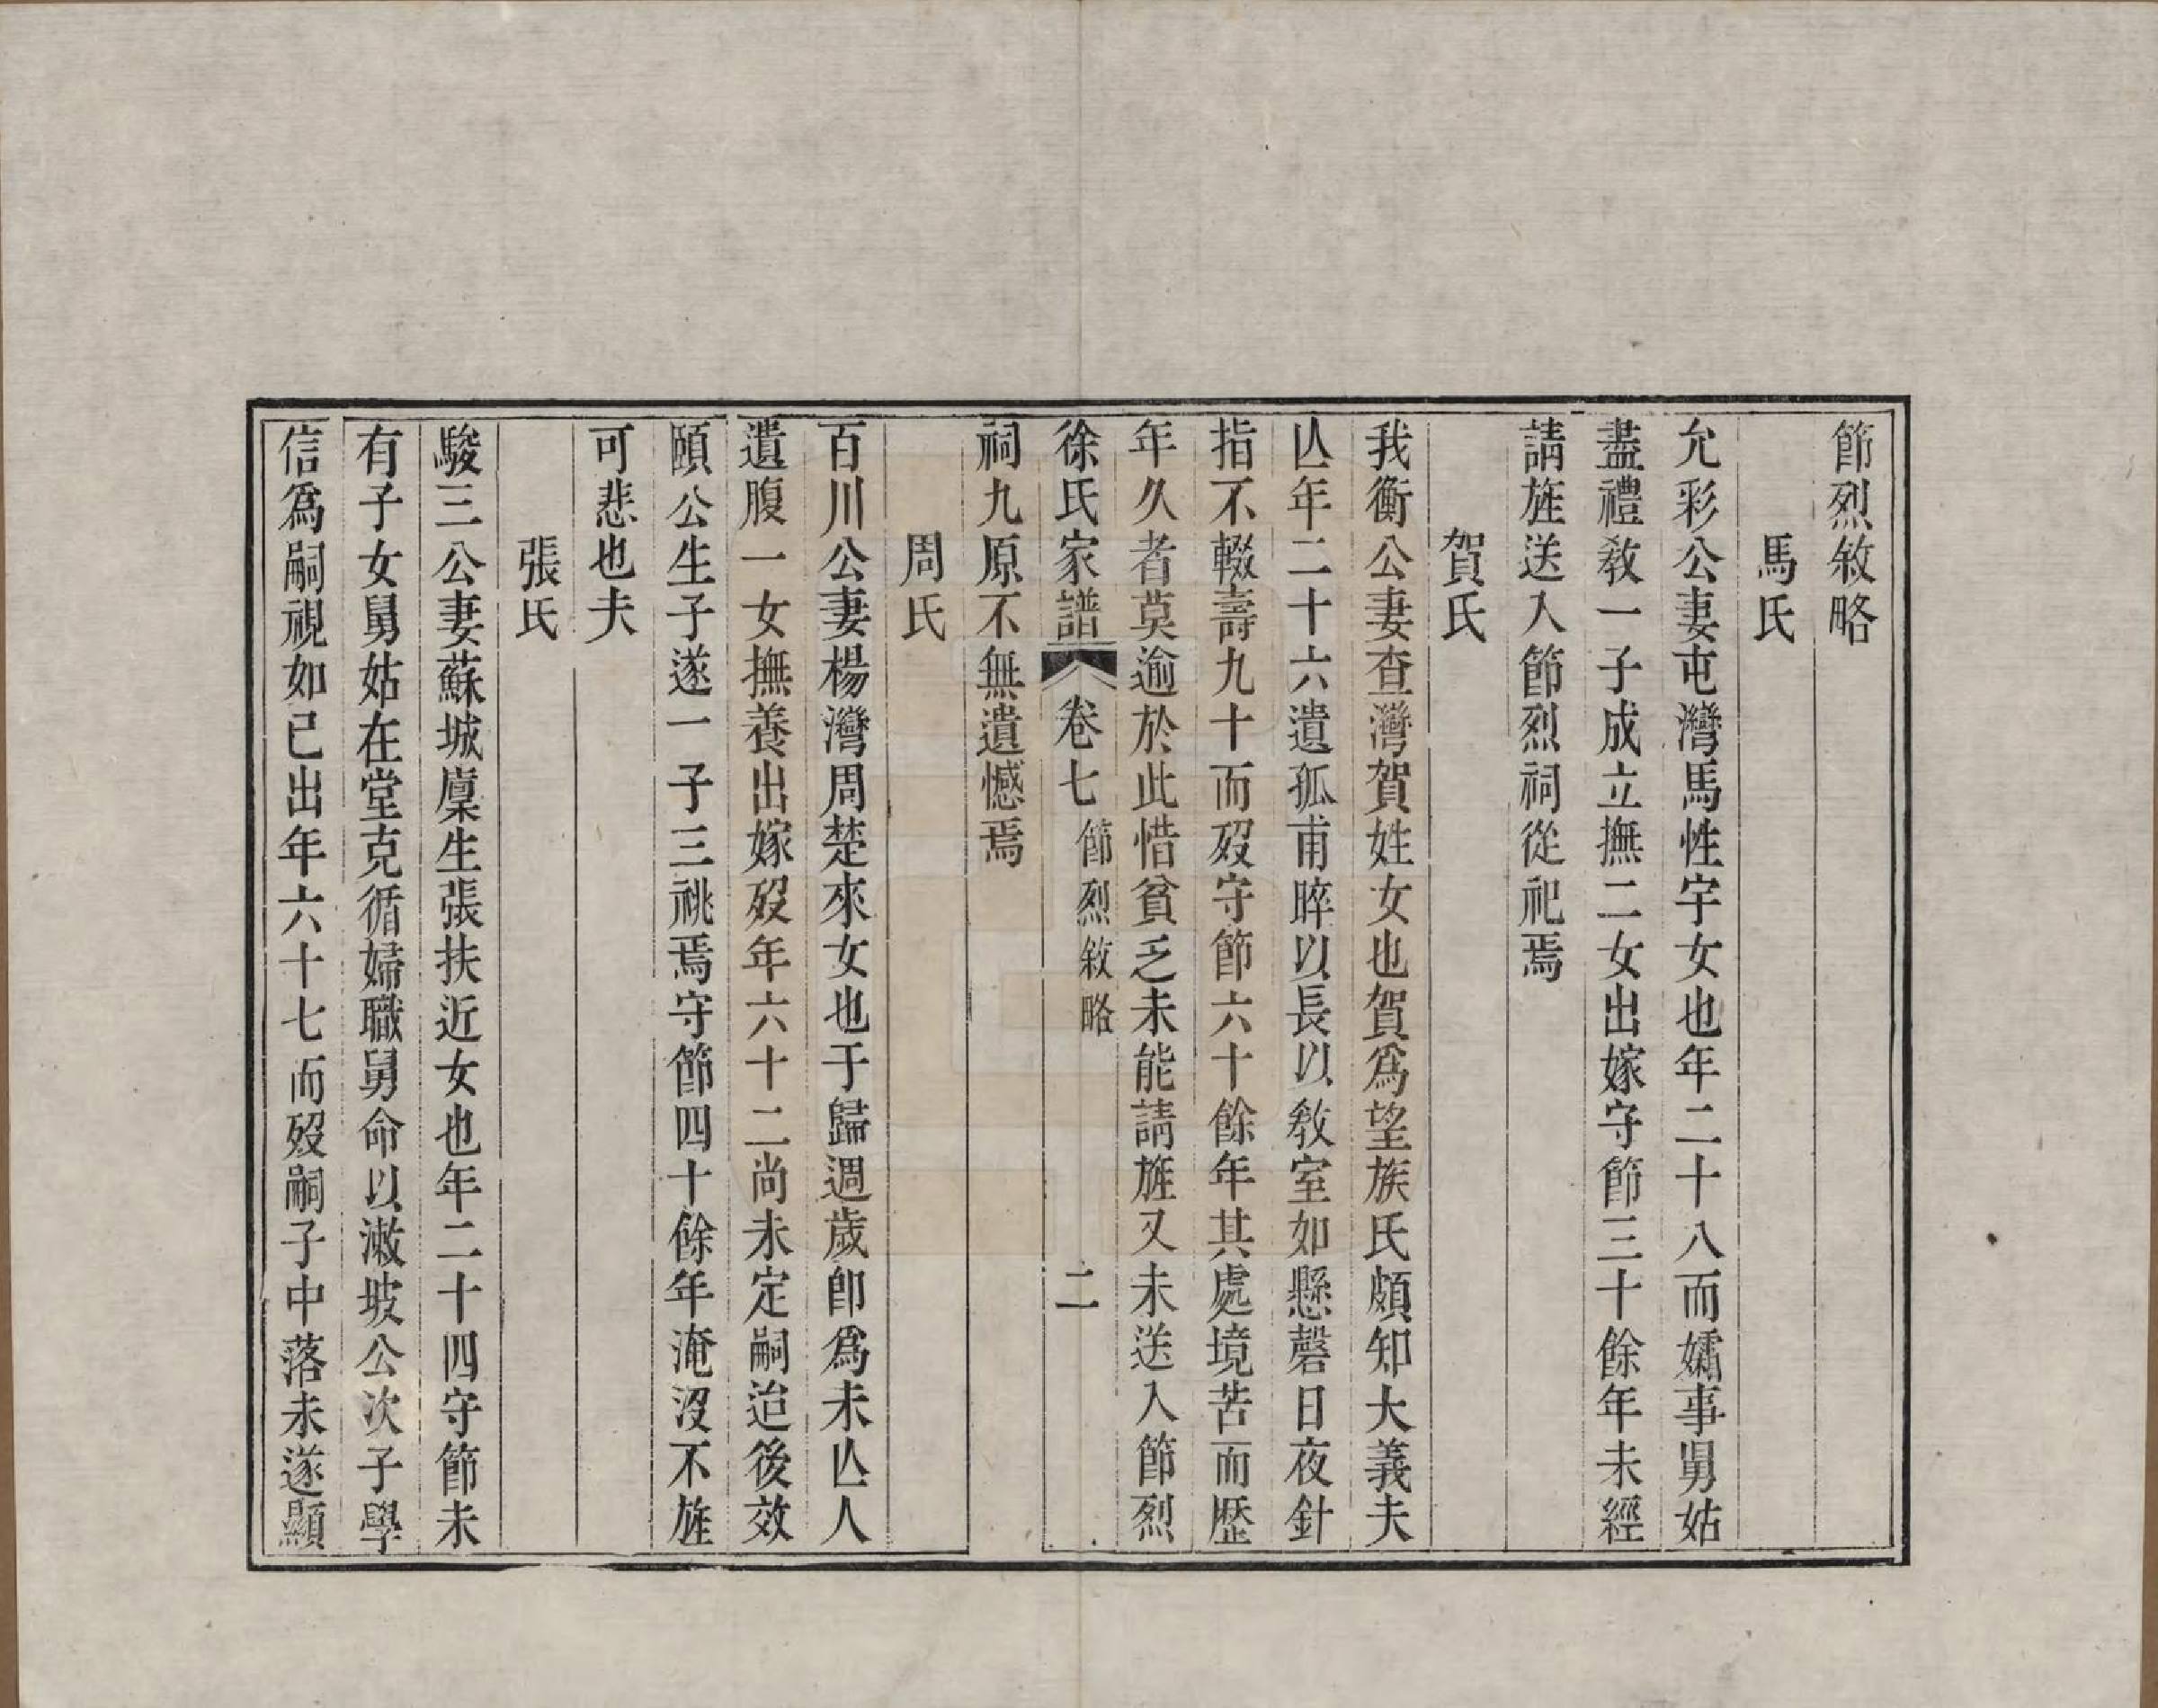 節烈敘略
馬氏
允彩公妻屯灣馬性宇女也年二十八而孀事舅姑
盡禮敎一子成立撫二女出嫁守節三十餘年未經
請旌送入節烈祠從祀焉
賀氏
我衡公妻查灣賀姓女也賀爲望族氏頗知大義夫
亾年二十六遺孤甫晬以長以敎室如懸磬日夜針
指不輟壽九十而歿守節六十餘年其處境苦而歷
年久者莫逾於此惜貧乏未能請旌又未送入節烈
徐氏家譜 卷七 節烈敘略 二
祠九原不無遺憾焉
周氏
百川公妻楊灣周楚來女也于歸週歲卽爲未亾人
遺腹一女撫養出嫁歿年六十二尚未定嗣迨後效
頤公生子遂一子三祧焉守節四十餘年淹沒不旌
可悲也夫
張氏
駿三公妻蘇城廩生張扶近女也年二十四守節未
有子女舅姑在堂克循婦職舅命以漱坡公次子學
信爲嗣視如己出年六十七而歿嗣子中落未遂顯